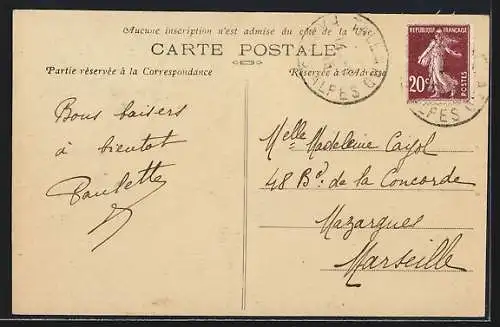 Aucune inscription n'est admise du côté de la
CARTE POSTALE
Partie réservée à la Correspondance
Réservée à l'Adresse
REPUBLIQUE FRANÇAISE
20c
POSTES
Bons baisers
à bientot
Paulette
Melle Madeleine Cayol
48 Bd. de la Concorde
Mazargues
Marseille